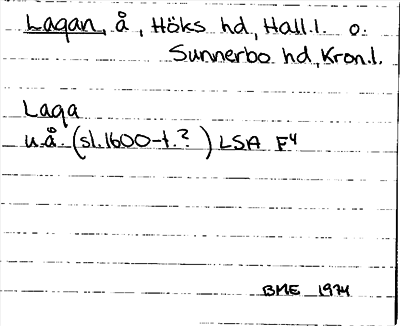 Lagan, å, Höks hd, Hall.l. o.
Sunnerbo hd, Kron.l.
Laga
u.å. (sl. 1600-t.?) LSA F4
BME 1974